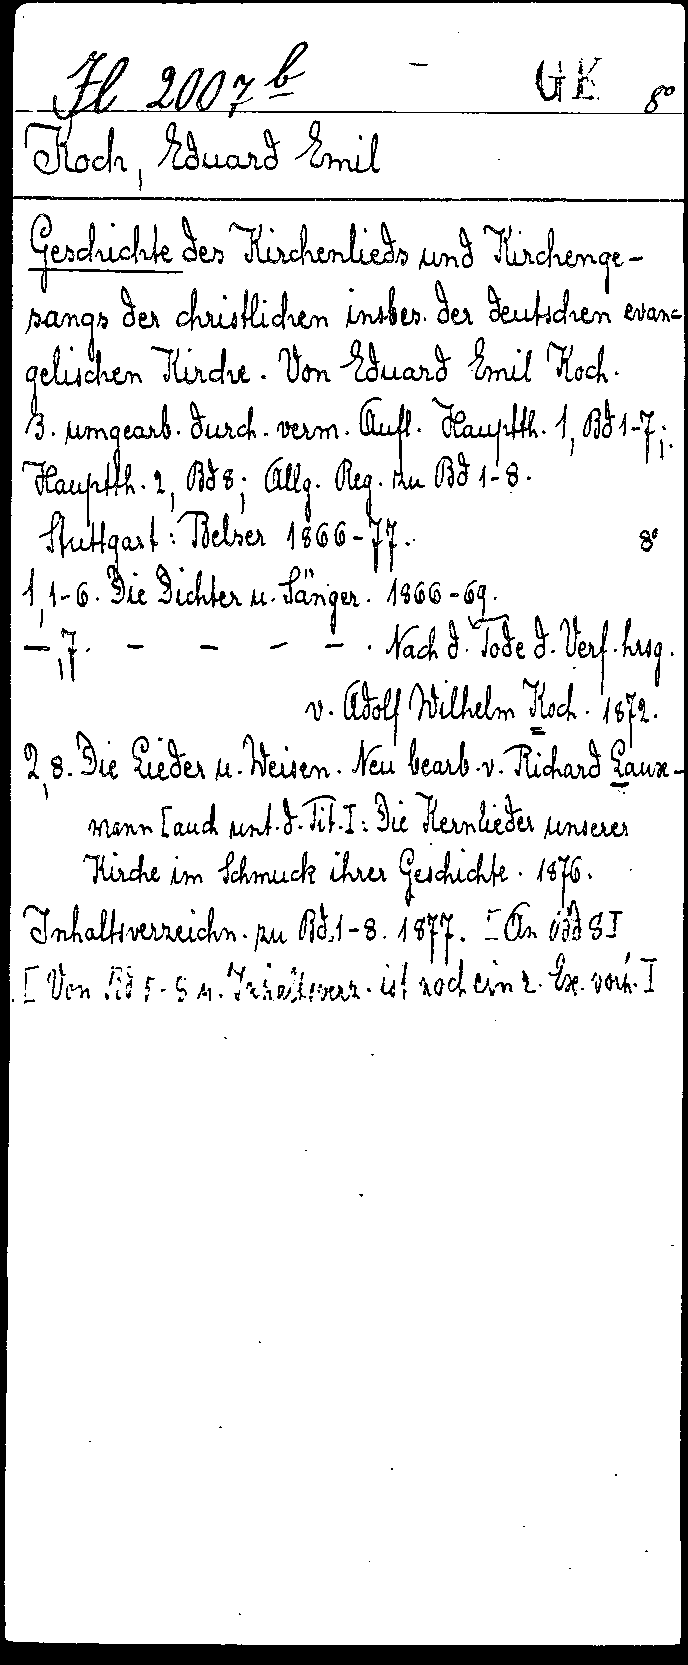 Jl 2007 b - GK 8°
Koch, Eduard Emil
Geschichte des Kirchenlieds und Kirchenge-
sangs der christlichen insbes. der deutschen evan=
gelischen Kirche. Von Eduard Emil Koch.
3. umgearb. durch. verm. Aufl. Hauptth. 1, Bd 1-7;
Hauptth. 2, Bd 8; Allg. Reg. zu Bd 1-8.
Stuttgart: Belser 1866-77. 8°
1,1-6. Die Dichter u. Sänger. 1866-69.
-,7. - - - - . Nach d. Tode d. Verf. hrsg.
v. Adolf Wilhelm Koch. 1872.
2,8. Die Lieder u. Weisen. Neu bearb. v. Richard Laux-
mann [auch unt. d. Tit.]: Die Kernlieder unserer
Kirche im Schmuck ihrer Geschichte. 1876.
Inhaltsverzeichn. zu Bd. 1-8. 1877. [An Bd 8]
[Von Bd 5-8 u. Inhaltsverz. ist noch ein 2. Ex. vorh.]